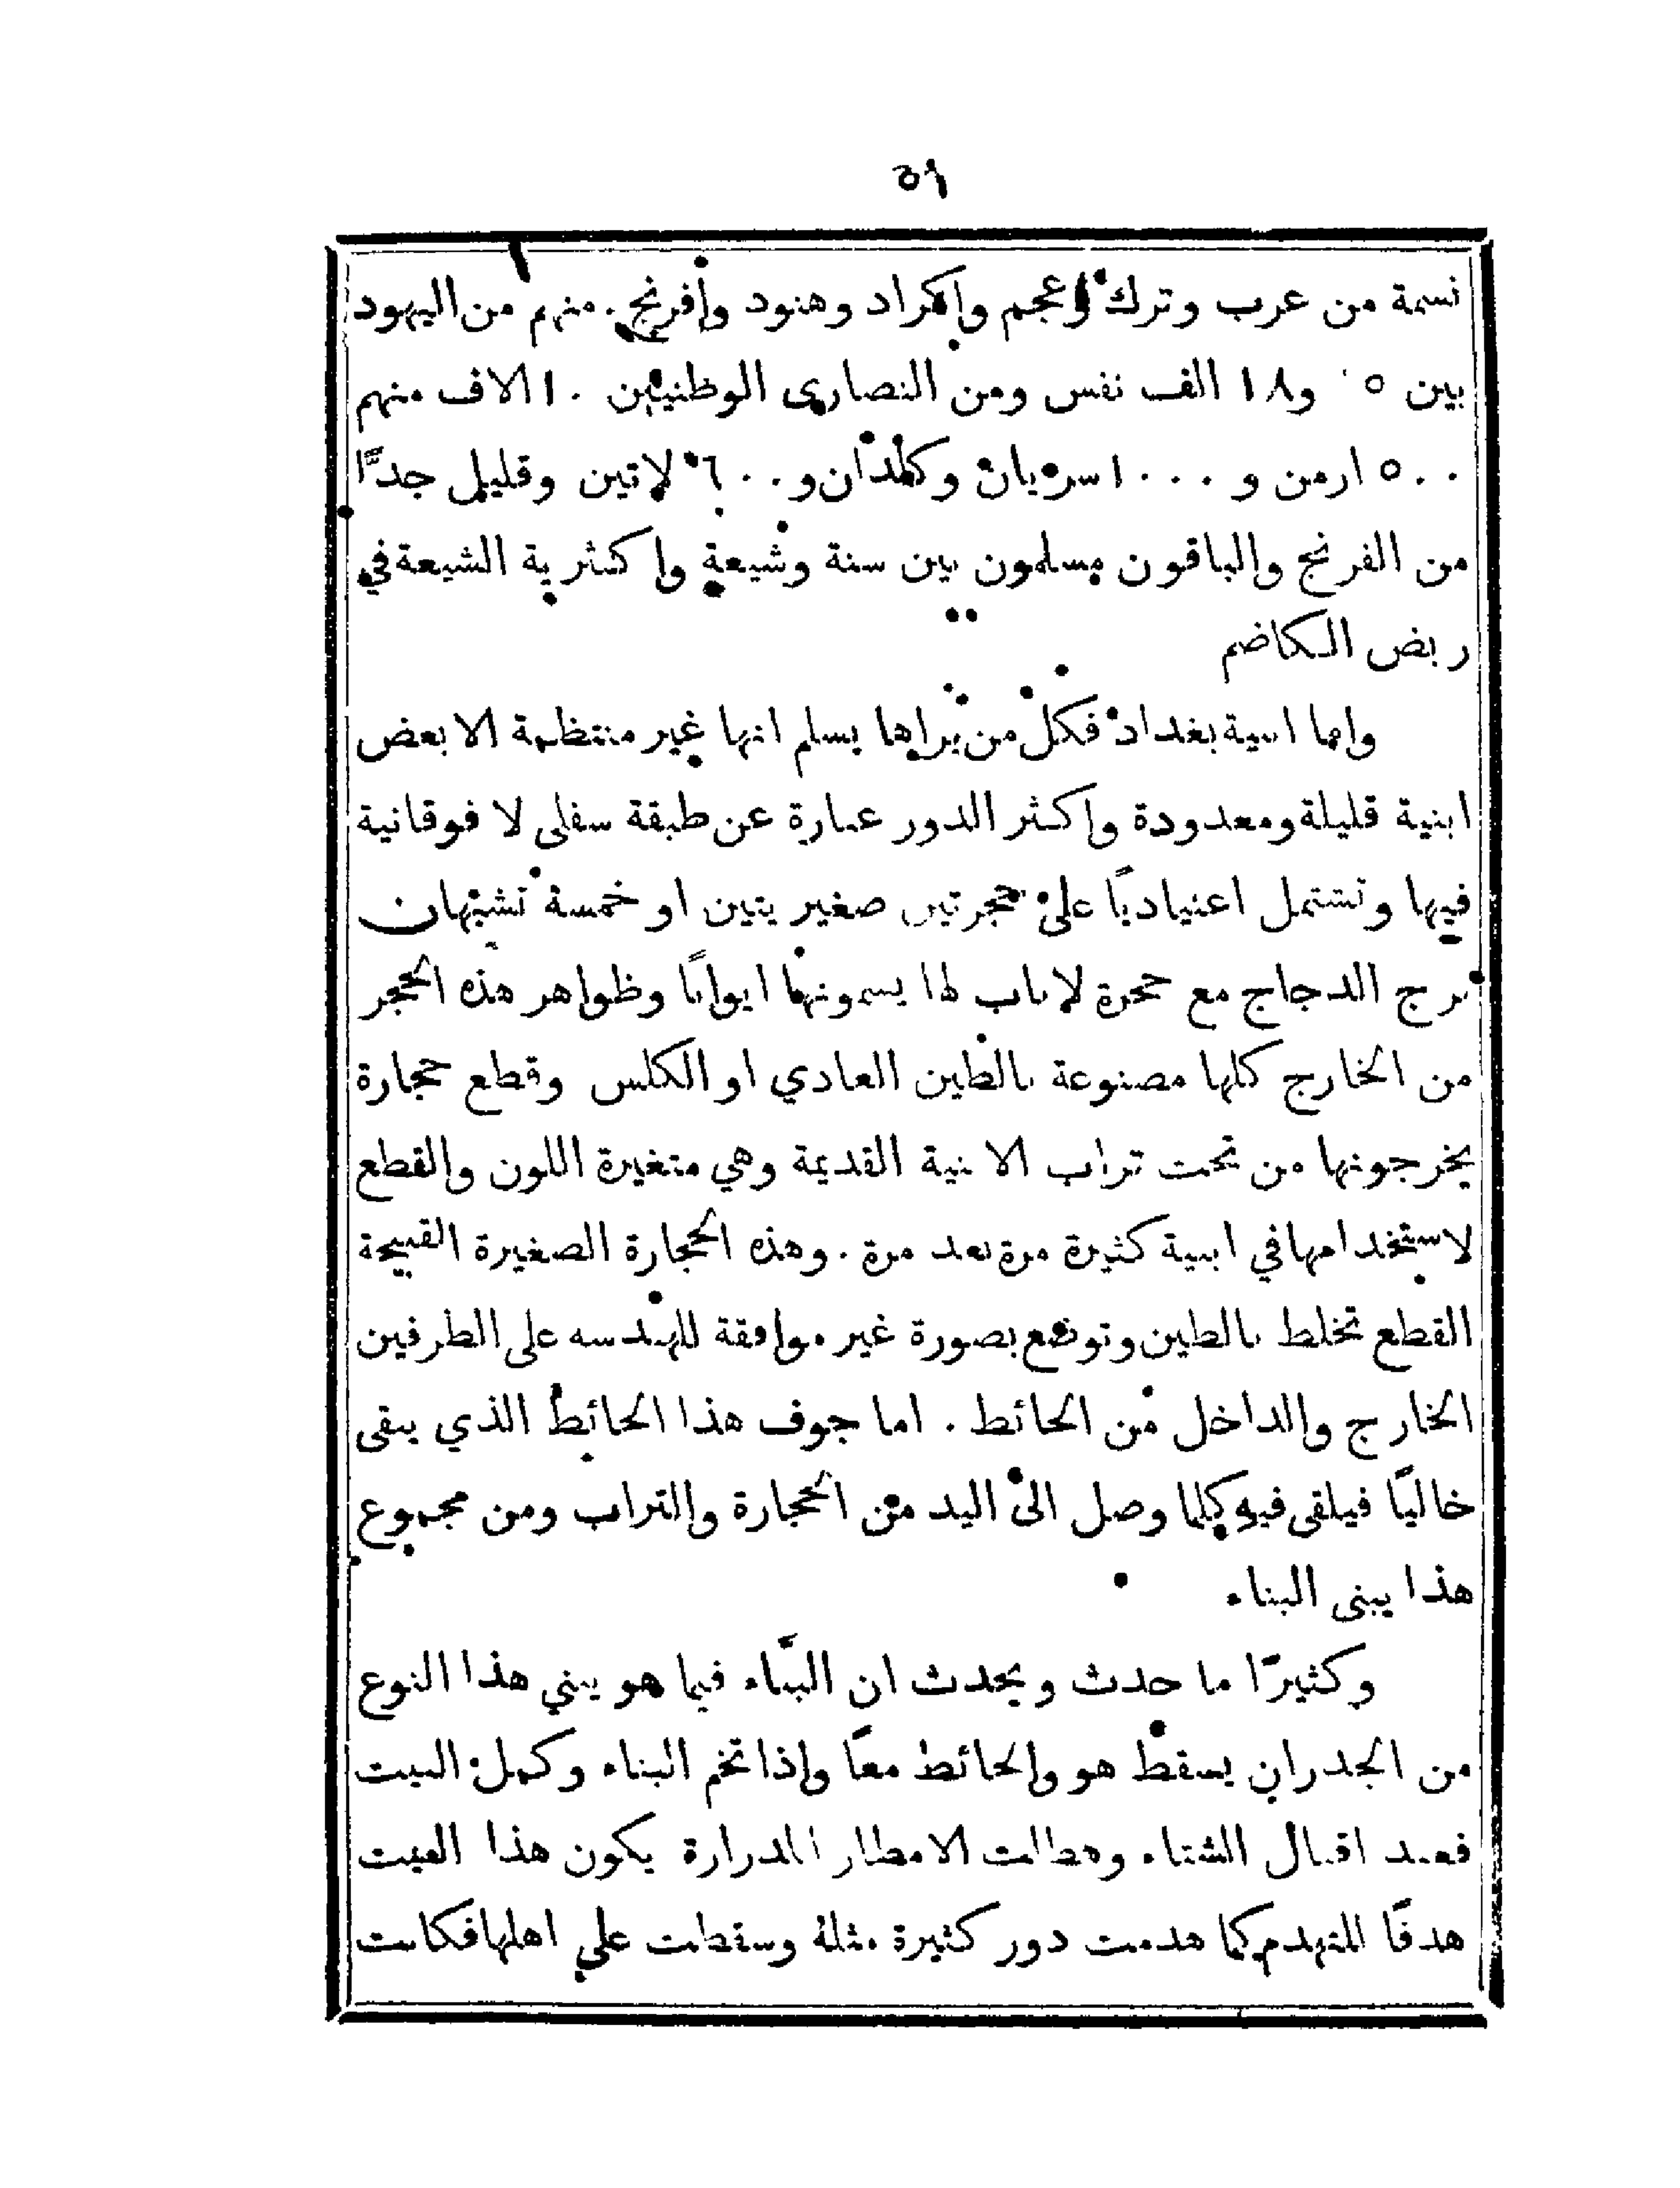 ٥٩
نسمة من عرب وترك وعجم وإكراد وهنود وإفرنج. منهم من اليهود
بين ١٥ و١٨ الف نفس ومن النصارى الوطنيين ١٠ الاف منهم
٥٠٠ ارمن و ١٠٠٠ سريان وكلدان و ٦٠٠ لاتين وقليل جدًّا
من الفرنج والباقون مسلمون بين سنة وشيعة وإكثرية الشيعة في
ربض الكاضم
وإما ابنية بغداد فكل من يراها يسلم انها غير منتظمة الا بعض
ابنية قليلة ومعدودة وإكثر الدور عبارة عن طبقة سفلى لا فوقانية
فيها وتشتمل اعنياديًا على حجرتين صغيرتين او خمسة تشبهان
برج الدجاج مع حجرة لا باب لها يسمونها ايوانًا وظواهر هذه الحجر
من الخارج كلها مصنوعة بالطين العادي او الكلس وقطع حجارة
يخرجونها من تحت تراب الابنية القديمة وهي متغيرة اللون والقطع
لاستخدامها في ابنية كثيرة مرة بعد مرة. وهذه الحجارة الصغيرة القبيحة
القطع تخلط بالطين وتوضع بصورة غير موافقة للهندسه على الطرفين
الخارج والداخل من الحائط. اما جوف هذا الحائط الذي يبقى
خاليًا فيلقى فيه كلما وصل الى اليد من الحجارة والتراب ومن مجموع
هذا يبنى البناء
وكثيرًا ما حدث ويحدث ان البنّاء فيما هو يبني هذا النوع
من الجدران يسقط هو والحائط معًا وإذا تخم البناء وكمل البيت
فعند اقبال الشتاء وهطالت الامطار المدرارة يكون هذا البيت
هدفًا للتهدم كما هدمت دور كثيرة مثلهُ وسقطت على اهلها فكانت